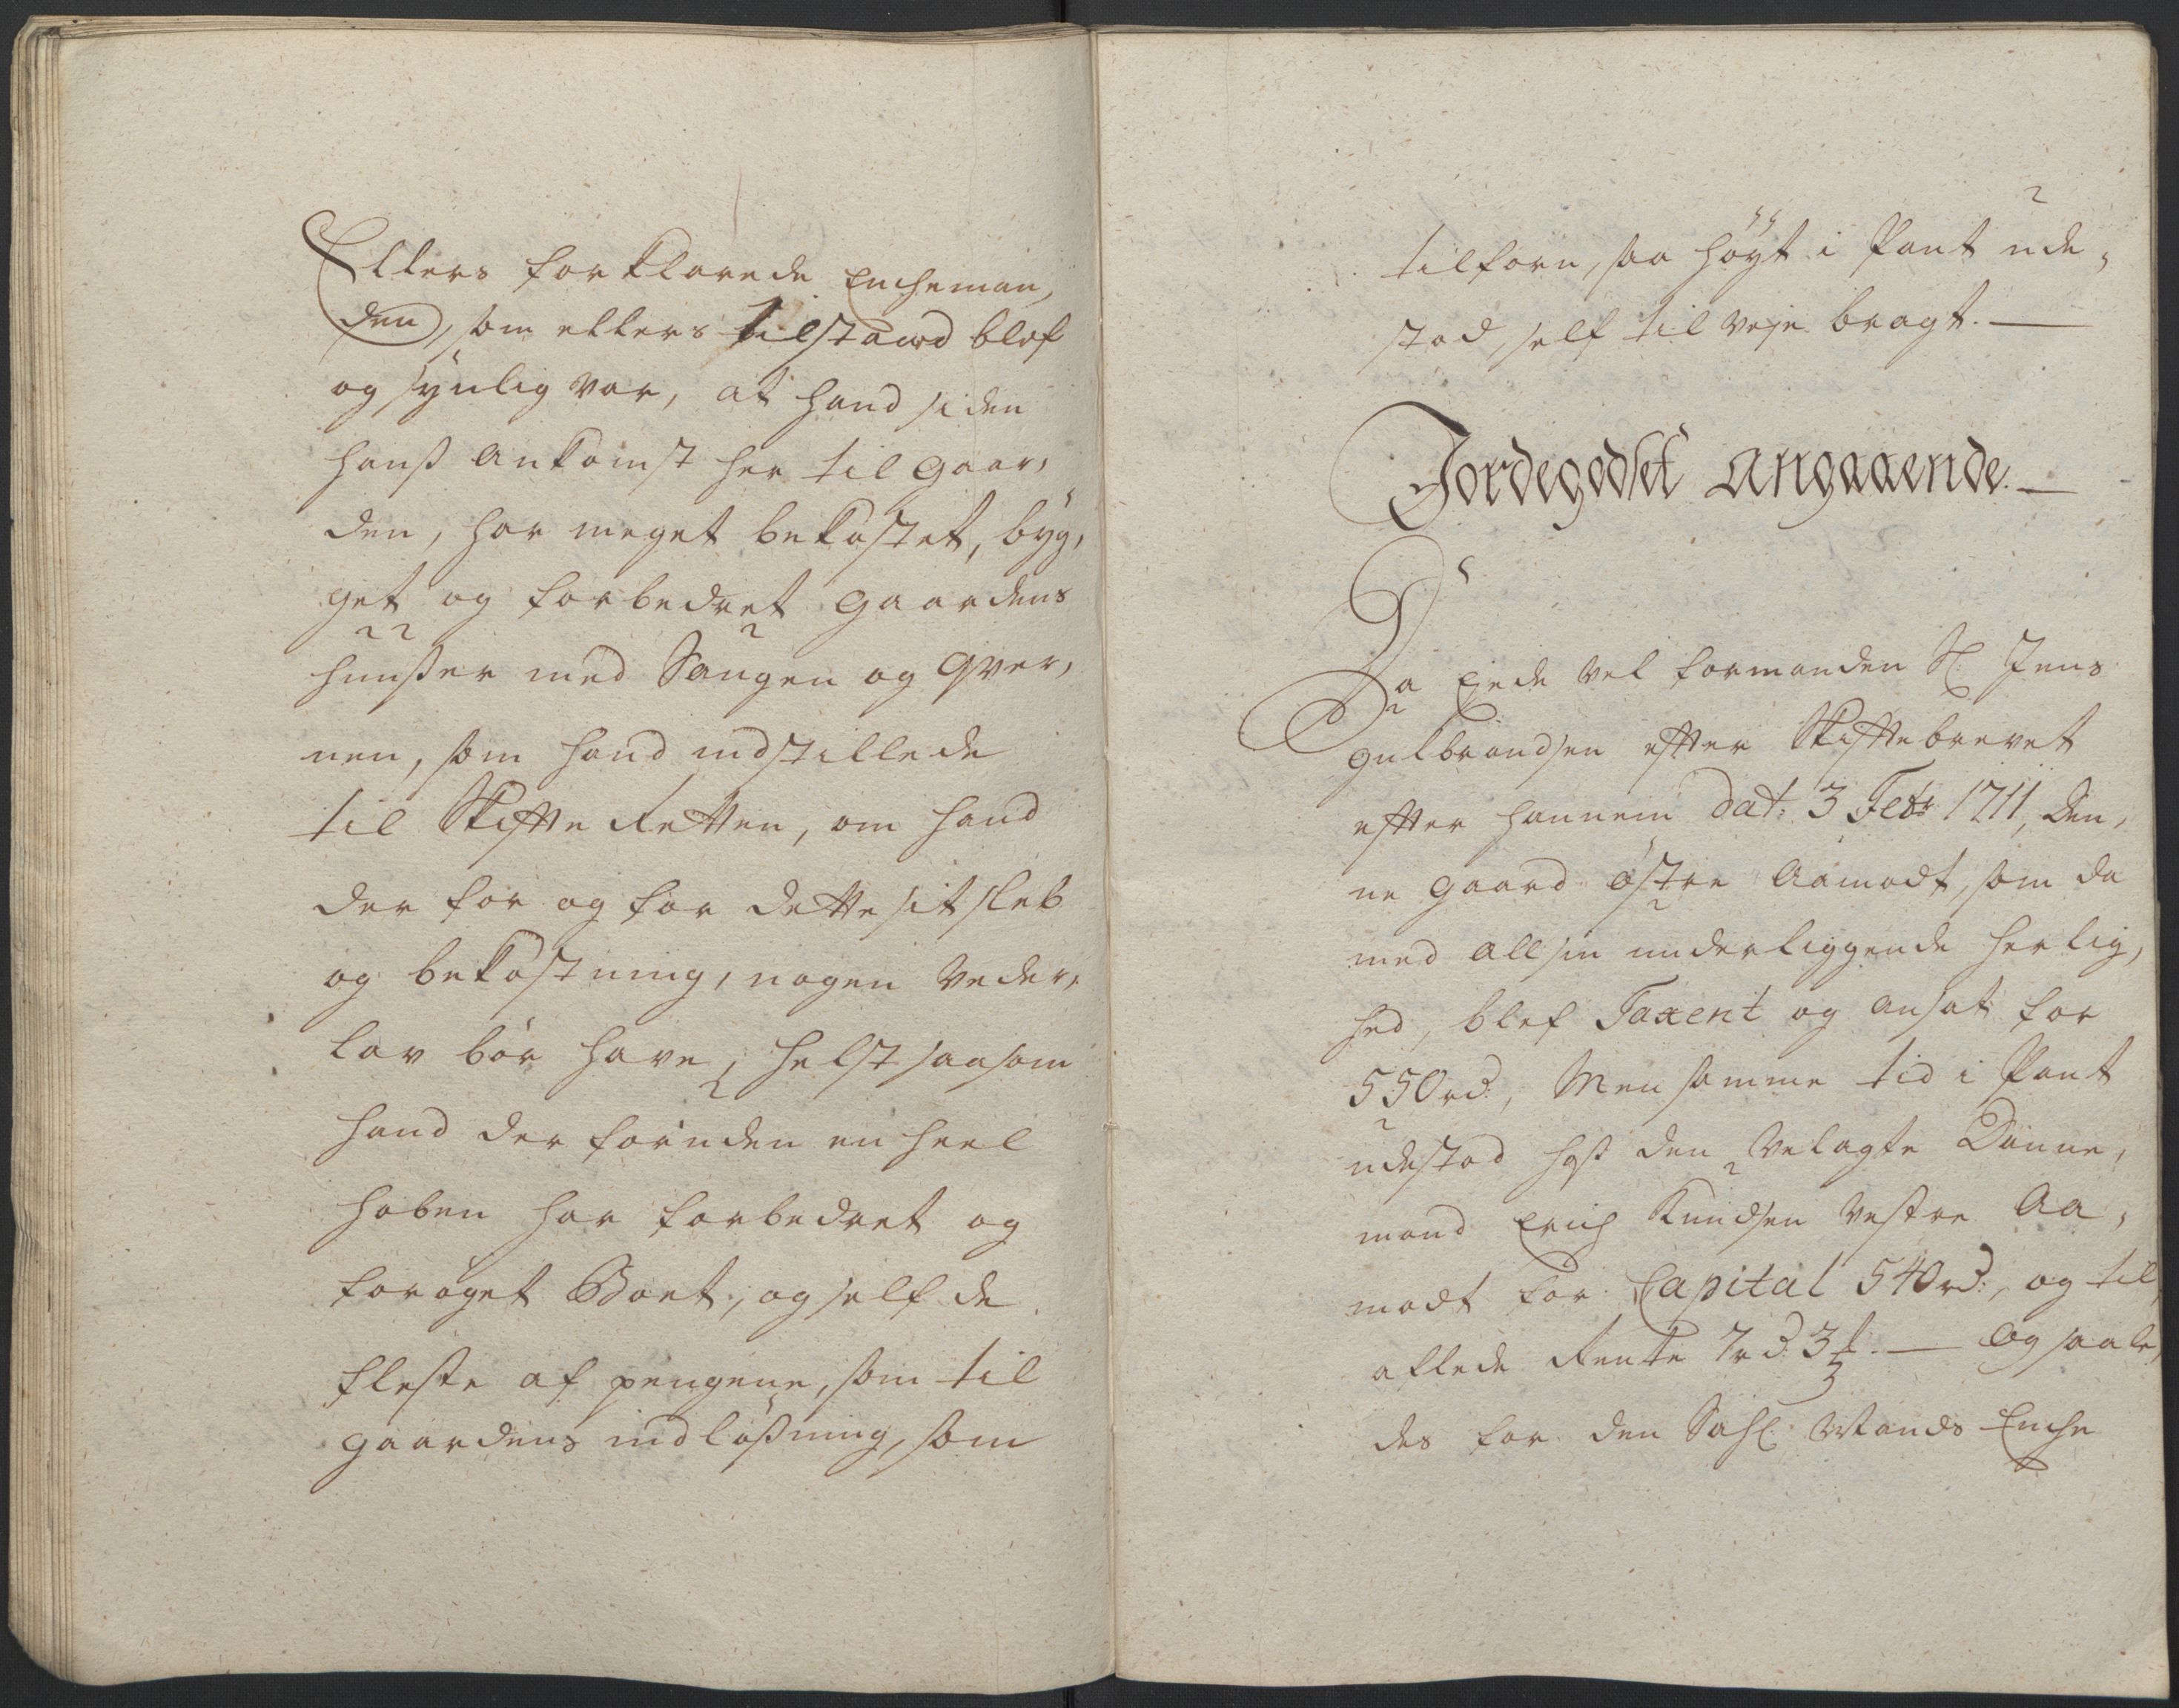 Ellers forklarede Encheman,
den, som ellers tilstaard blef
og synlig var, at hand siden
hans ankomst her til gaar,
den, har meget bekostet, byg,
get og forbedret gaardens
huuser med Saugen og Qver,
nen, som hand indstillede
til Skifte Retten, om hand
der for og for dette sit sleb
og bekostning, nogen veder,
lav bør have, helst saasom
hand der foruden en heel
hoben har forbedret og
forøget Boet, og self de
fleste af pengene, som til
gaardens indløsning, som
tilforn, saa høyt i Pant ude,
stod, self til veje bragt. —
Jordegodset angaaende. —
Da Eyede vel formanden Sl. Jens
gulbrandsen efter Skiftebrevet
efter hannem dat: 3 Febr 1711, Den,
ne gaard østre Aamodt, som da
med all sin underliggende herlig,
hed, blef Taxert og ansat for
550 rd:, Men samme tid i Pant
udestod hos den Velagte Danne,
mand Erich Knudsen vestre Aa,
modt for Capital 540 rd:, og til,
allede Rente 7 rd 3 ß. — Og saale,
des for den Sahl: Mands Enche